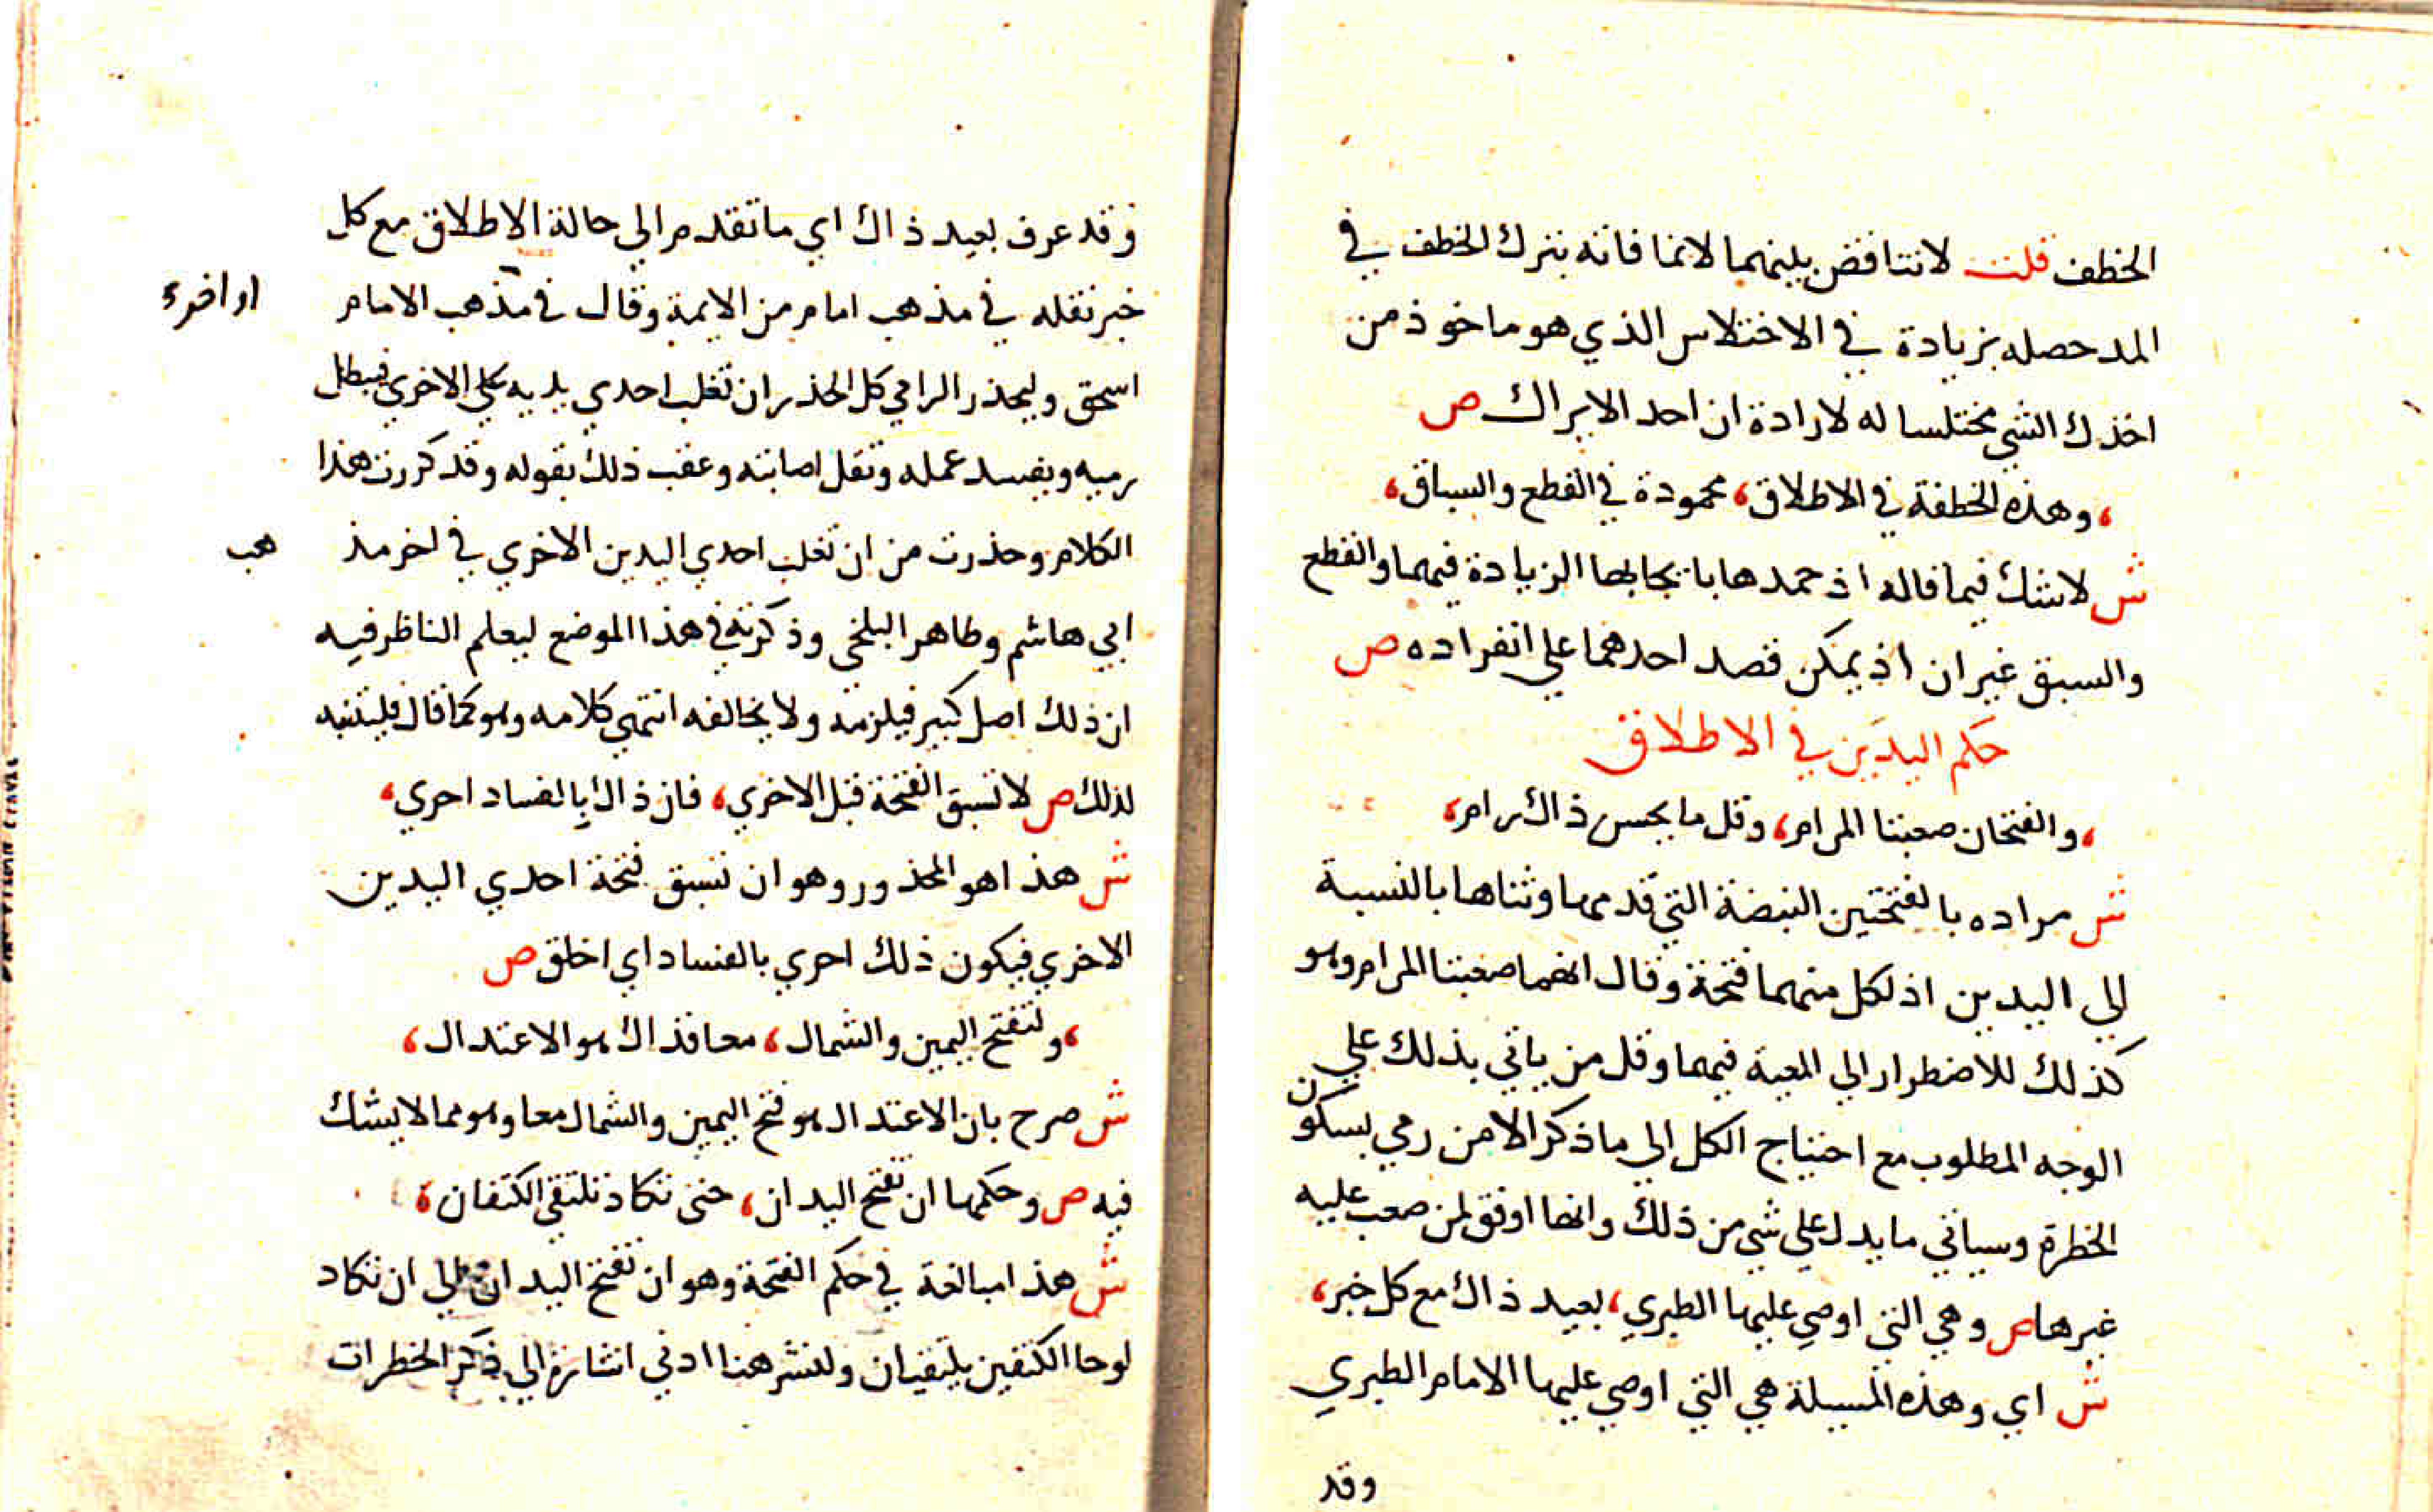 الخطف قلت لا تتناقض بينهما لانما فاته بترك الخطف في
المد حصله بزيادة في الاختلاس الذي هو ماخوذ من
اخذك الشي مختلسا له لارادة ان احد الابراك ص
، وهذه الخطفة في الاطلاق، محمودة في القطع والسباق،
ش لاشك فيما قاله اذ حمدها بايجابها الزيادة فيهما والقطع
والسبق غيران اذ يمكن قصد احدهما علي انفراده ص
حكم اليدين في الاطلاق
، والفتحان صعبتا المرام، وقل ما يحسن ذاك رام،
ش مراده بالفتحتين النبضة التي قدمها وثناها بالنسبة
الي اليدين اذ لكل منهما فتحة وقال انهما صعبتا المرام وهو
كذلك للاضطرار الي المعية فيهما وقل من ياتي بذلك علي
الوجه المطلوب مع احتياج الكل الي ما ذكر الا من رمي بسكون
الخطرة وسياتي ما يدل علي شي من ذلك وانها اوفق لمن صعب عليه
غيرها ص وهي التي اوصي عليها الطبري، بعيد ذاك مع كل خبر،
ش اي وهذه المسيلة هي التي اوصي عليها الامام الطبري
وقد
وقد عرف بعيد ذاك اي ما تقدم الي حالة الاطلاق مع كل
خبر نقله في مذهب امام من الايمة وقال في مذهب الامام
اسحق وليحذر الرامي كل الحذر ان تغلب احدي يديه علي الاخري فيبطل
رميه ويفسد عمله وتقل اصابته وعقب ذلك بقوله وقد كررت هذا
الكلام وحذرت من ان تغلب احدي اليدين الاخري في اخر مذ
هب
ابي هاشم وطاهر البلخي وذكرته في هذا الموضع ليعلم الناظر فيه
ان ذلك اصل كبير فيلزمه ولا يخالفه انتهي كلامه وهو كما قال فليتنبه
لذلك ص لا تسبق الفتحة قبل الاخري، فان ذاك بالفساد احري،
ش هذا هو المحذور وهو ان تسبق فتحة احدي اليدين
الاخري فيكون ذلك احري بالفساد اي اخلق ص
، ولتفتح اليمين والشمال، معا فذاك هو الاعتدال،
ش صرح بان الاعتدال هو فتح اليمين والشمال معا وهو مما لا يشك
فيه ص وحكمها ان تفتح اليدان، حتي تكاد تلتقي الكتفان،
ش هذا مبالغة في حكم الفتحة وهو ان تفتح اليدان الي ان تكاد
لوحا الكتفين يلتقيان ولنشر هنا ادني اشارة الي ذكر الخطرات